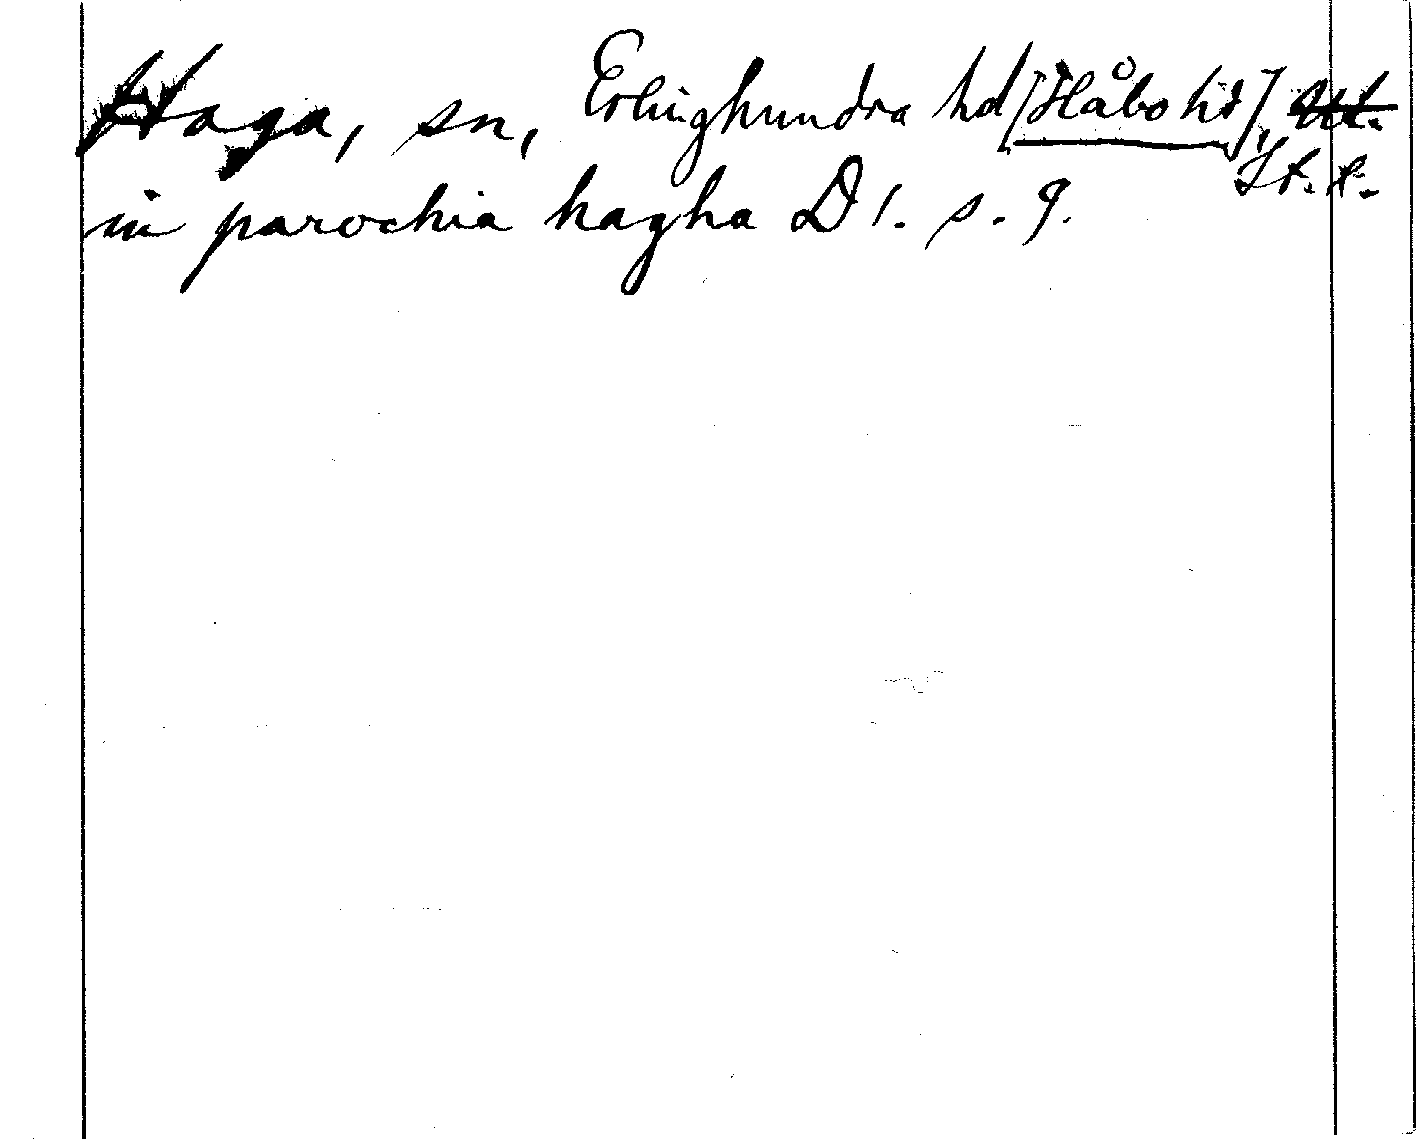 Haga, sn, Erlinghundra hd [Håbo hd], Ul.
St. l.
in parochia hagha D 1. s. 9.